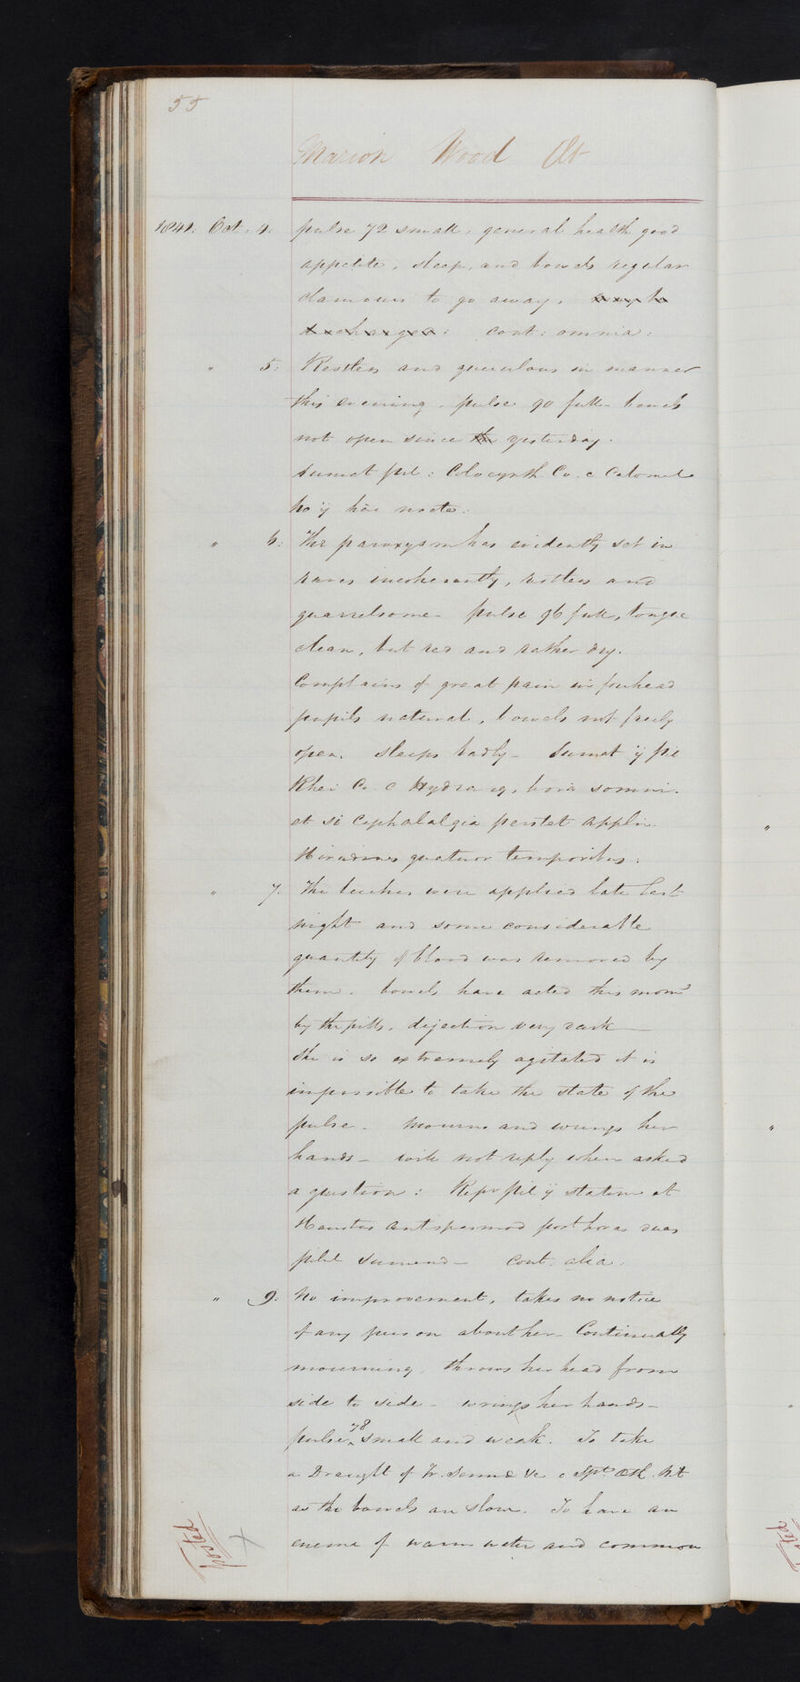 55
Marion Wood Æt
1841. Oct. 4. pulse 72 small, general health good
appetite, sleep, and bowels regular
clamours to go away,
cont: omnia.
" 5. Restless and querulous in manner
this evening. pulse 90 full. bowels
not open since the yesterday.
Sumat pil: Colocynth Co. c Calomel
No ij hac nocte.
" 6. The paroxysm has evidently set in
raves incoherently, restless and
quarrelsome. pulse 96 full, tongue
clean, but red and rather dry.
Complains of great pain in forehead
pupils natural, bowels not freely
open. sleeps badly - Sumat ij pil
Rhei Co. c Hydrarg, hora somni.
et si Cephalalgia perstet applic.
Hirudines quatuor temporibus.
" 7. The leeches were applied late last
night and some considerable
quantity of blood was removed by
them. bowels have acted this morng
by the pills, dejection very dark
She is so extremely agitated it is
impossible to take the state of the
pulse. mourns and wrings her
hands - will not reply when asked
a question: Repr pil ij statim et
Haustus antispasmod post horas duas
sumend - cont. alia.
" 9. No improvement, takes no notice
of any person about her. Continually
mourning, throws her head from
side to side - wrings her hands -
pulse 78 small and weak. To take
a Draught of Tr. Sennæ c Spt Æth. Nit
as the bowels are slow. To have an
enema of warm water and common
posted